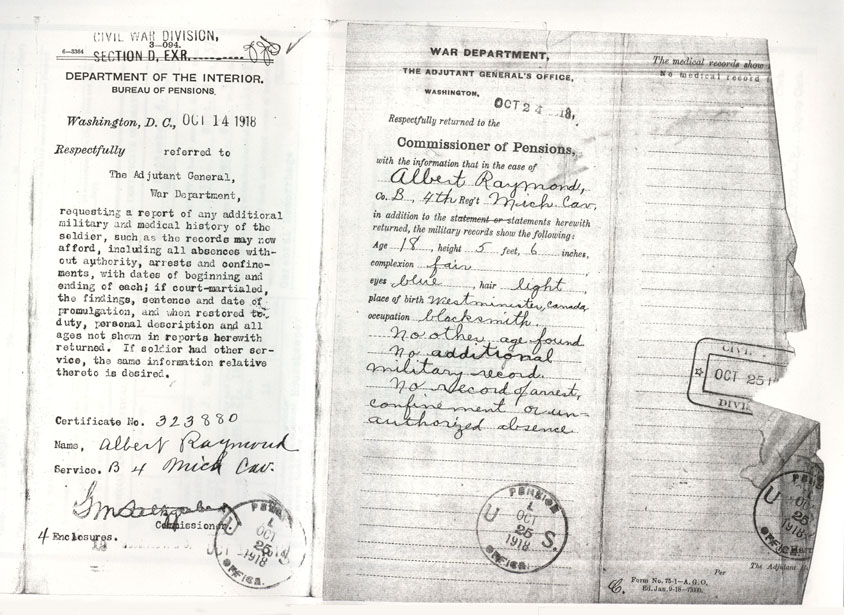 CIVIL WAR DIVISION,
3—094.
6—3364
SECTION D, EXR.
DEPARTMENT OF THE INTERIOR.
BUREAU OF PENSIONS.
Washington, D. C., OCT 14 1918
Respectfully referred to
The Adjutant General,
War Department,
requesting a report of any additional
military and medical history of the
soldier, such as the records may now
afford, including all absences with-
out authority, arrests and confine-
ments, with dates of beginning and
ending of each; if court-martialed,
the findings, sentence and date of
promulgation, and when restored to
duty, personal description and all
ages not shown in reports herewith
returned. If soldier had other ser-
vice, the same information relative
thereto is desired.
Certificate No. 323880
Name, Albert Raymond
Service. B 4 Mich Cav.
Commissioner.
4 Enclosures.
U S
PENSION
OCT
25
1918
OFFICE.
WAR DEPARTMENT,
THE ADJUTANT GENERAL'S OFFICE,
WASHINGTON,
OCT 24 18,
Respectfully returned to the
Commissioner of Pensions,
with the information that in the case of
Albert Raymond,
Co. B, 4th Reg't Mich Cav.
in addition to the statement or statements herewith
returned, the military records show the following:
Age 18, height 5 feet, 6 inches,
complexion fair,
eyes blue, hair light
place of birth Westminister, Canada
occupation blacksmith
No other age found
No additional
military record.
No record of arrest,
confinement or un-
authorized absence
PENSION
1
OCT
25
1918
U S.
OFFICE.
The medical records show
No medical record
CIVIL
OCT 25 1
DIVI
PENSION
U
1
OCT
25
1918
OFFICE
The Adjutant
Per
C. Form No. 75-1—A. G. O.
Ed. Jan. 9-18—73000.